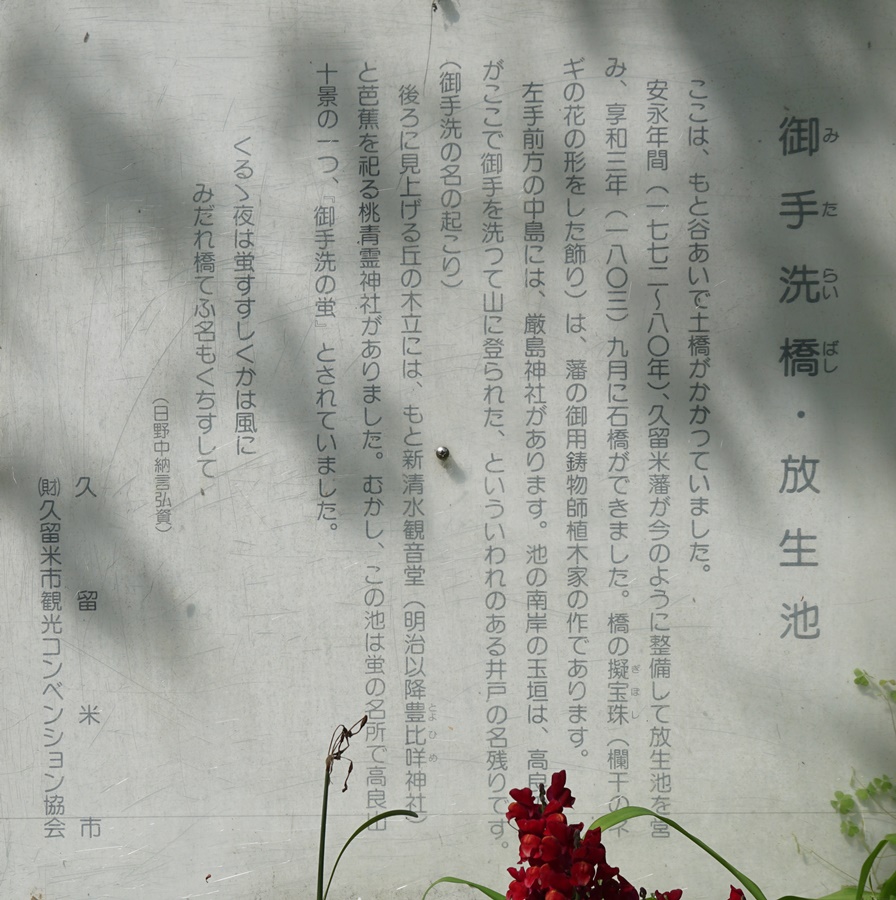 御手洗橋・放生池
みたらいばし
ここは、もと谷あいで土橋がかかつていました。
安永年間（一七七二～八〇年）、久留米藩が今のように整備して放生池を営
み、享和三年（一八〇三）九月に石橋ができました。橋の擬宝珠（欄干のネ
ぎぼし
ギの花の形をした飾り）は、藩の御用鋳物師植木家の作であります。
左手前方の中島には、厳島神社があります。池の南岸の玉垣は、高良
がここで御手を洗つて山に登られた、といういわれのある井戸の名残りです。
（御手洗の名の起こり）
後ろに見上げる丘の木立には、もと新清水観音堂（明治以降豊比咩神社）
とよひめ
と芭蕉を祀る桃青霊神社がありました。むかし、この池は蛍の名所で高良山
十景の一つ、『御手洗の蛍』とされていました。
くるゝ夜は蛍すずしくかは風に
みだれ橋てふ名もくちずして
（日野中納言弘資）
久留米市
㈶久留米市観光コンベンション協会